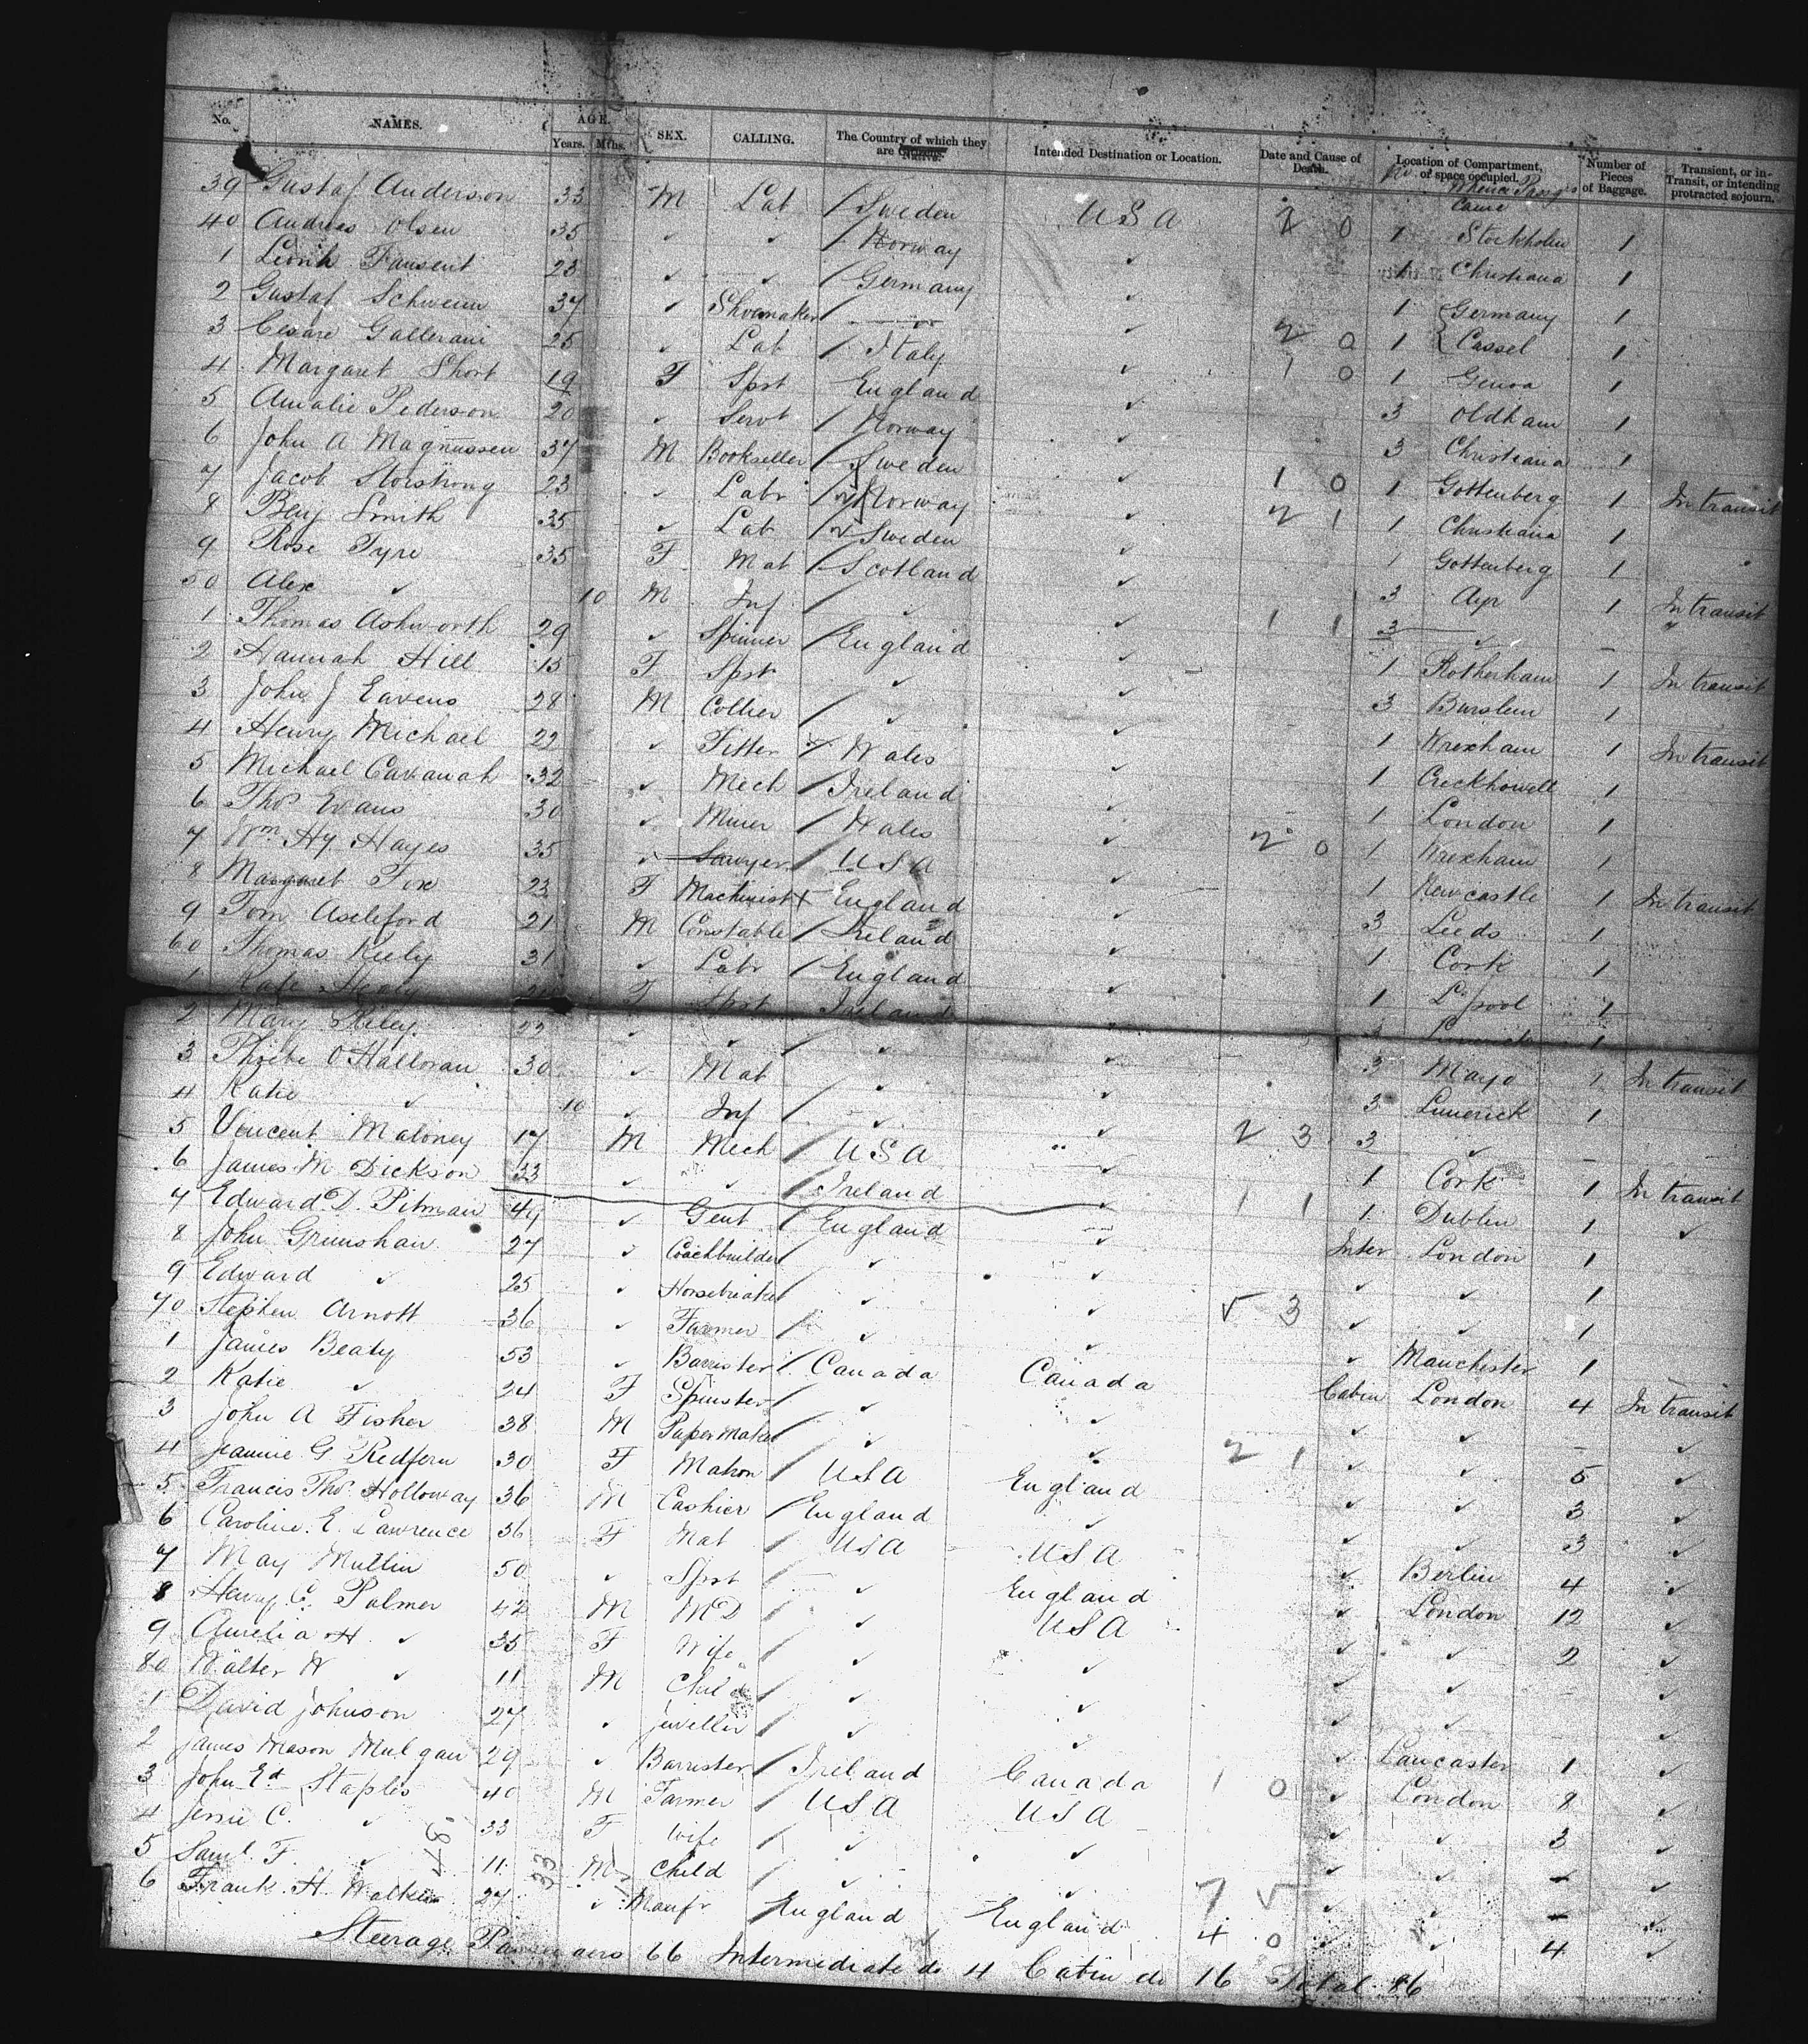 No. NAMES. AGE. SEX. CALLING. The Country of which they are Native. Intended Destination or Location. Date and Cause of Death. Location of Compartment, or space occupied. Number of Pieces of Baggage. Transient, or in-Transit, or intending protracted sojourn.
Years. Mths. Whence Passgrs Came
39 Gustaf Anderson 33 M Lab / Sweden U S A 2 0 1 Stockholm 1
40 Andreas Olsen 35 ✓ ✓ / Norway ✓ 1 Christiana 1
1 Fausent 23 ✓ ✓ / Germany ✓ 1 Germany 1
2 Gustaf Schwenn 37 ✓ Shoemaker / ✓ 2 0 1 Cassel 1
3 Cesare Gallerani 25 ✓ Lab / Italy ✓ 1 0 1 Genoa 1
4 Margaret Short 19 F Spst England ✓ 3 Oldham 1
5 Amalie Pederson 20 ✓ Servt / Norway ✓ 3 Christiana 1
6 John A Magnussen 37 M Bookseller / Sweden ✓ 1 0 1 Gottenberg 1 In transit
7 Jacob Storstrong 23 ✓ Labr / Norway ✓ 2 1 1 Christiana 1
8 Benj Smith 35 ✓ Lab / Sweden ✓ 1 Gottenberg 1
9 Rose Tyre 35 F Mat / Scotland ✓ 3 Ayr 1 In transit
50 Alex ✓ 10 M Inf / ✓ ✓ 1 1 3 ✓ -
1 Thomas Ashworth 29 ✓ Spinner / England ✓ 1 Rotherham 1 In transit
2 Hannah Hill 15 F Spst ✓ ✓ 3 Burslem 1
3 John J Eavens 28 M Collier / ✓ ✓ 1 Wrexham 1 In transit
4 Henry Michael 22 ✓ Fitter / Wales ✓ 1 Crickhowell 1
5 Michael Cavanah 32 ✓ Mech / Ireland ✓ 1 London 1
6 Thos Evans 30 ✓ Miner / Wales ✓ 2 0 1 Wrexham 1
7 Wm Hy Hayes 35 ✓ Sawyer / U S A ✓ 1 Newcastle 1 In transit
8 Margaret Fox 23 F Machinist + England ✓ 3 Leeds 1
9 Tom Ashleford 21 M Constable / Ireland ✓ 1 Cork 1
60 Thomas Keely 31 ✓ Labr / England ✓ 1 L'pool 1
1 Kate Healy F Spst Ireland ✓ 3 Limerick 1
2 Mary Kiley 22 ✓ ✓ / ✓ ✓ 3 Mayo 1 In transit
3 Phoebe O'Halloran 30 ✓ Mat / ✓ ✓ 3 Limerick 1
4 Katie ✓ 10 ✓ Inf / ✓ ✓ 2 3 3 ✓ -
5 Vincent Maloney 17 M Mech / U S A ✓ 1 Cork 1 In transit
6 James M Dickson 33 ✓ ✓ / Ireland ✓ 1 1 1 Dublin 1 ✓
7 Edward D. Pitman 49 ✓ Gent / England ✓ Inter London 1
8 John Grimshaw 27 ✓ Coachbuilder / ✓ ✓ ✓ ✓ 1
9 Edward ✓ 25 ✓ Horsebreaker / ✓ ✓ 5 3 ✓ ✓ 1
70 Stephen Arnott 36 ✓ Farmer / ✓ ✓ ✓ Manchester 1
1 James Beaty 53 ✓ Barrister / Canada Canada Cabin London 4 In transit
2 Katie ✓ 24 F Spinster / ✓ ✓ ✓ ✓ - ✓
3 John A Fisher 38 M Paper Maker ✓ ✓ 2 1 ✓ ✓ 5 ✓
4 Jeannie G Redfern 30 F Matron / U S A England ✓ ✓ 3 ✓
5 Francis Thos Holloway 36 M Cashier / England ✓ ✓ ✓ 3 ✓
6 Caroline E. Lawrence 36 F Mat / U S A U S A ✓ Berlin 4 ✓
7 May Mullin 50 ✓ Spst / ✓ England ✓ London 12 ✓
8 Henry C. Palmer 42 M M D / ✓ U S A ✓ ✓ 2 ✓
9 Aurelia H. ✓ 35 F Wife / ✓ ✓ ✓ ✓ - ✓
80 Walter W ✓ 11 M Child / ✓ ✓ ✓ ✓ ✓
1 David Johnson 27 ✓ Jeweller / ✓ ✓ ✓ Lancaster 1 ✓
2 James Mason Mulgan 29 ✓ Barrister / Ireland Canada 1 0 ✓ London 8 ✓
3 John Ed Staples 40 M Farmer / U S A U S A ✓ ✓ 3 ✓
4 Jessie C. ✓ 33 F Wife / ✓ ✓ ✓ ✓ - ✓
5 Saml. F. ✓ 11 M Child / ✓ ✓ 7 5 ✓ ✓ - ✓
6 Frank H. Walker 27 ✓ Manfr / England England 4 0 ✓ ✓ 4 ✓
Steerage Passengers 66 Intermediate do 4 Cabin do 16 Total 86